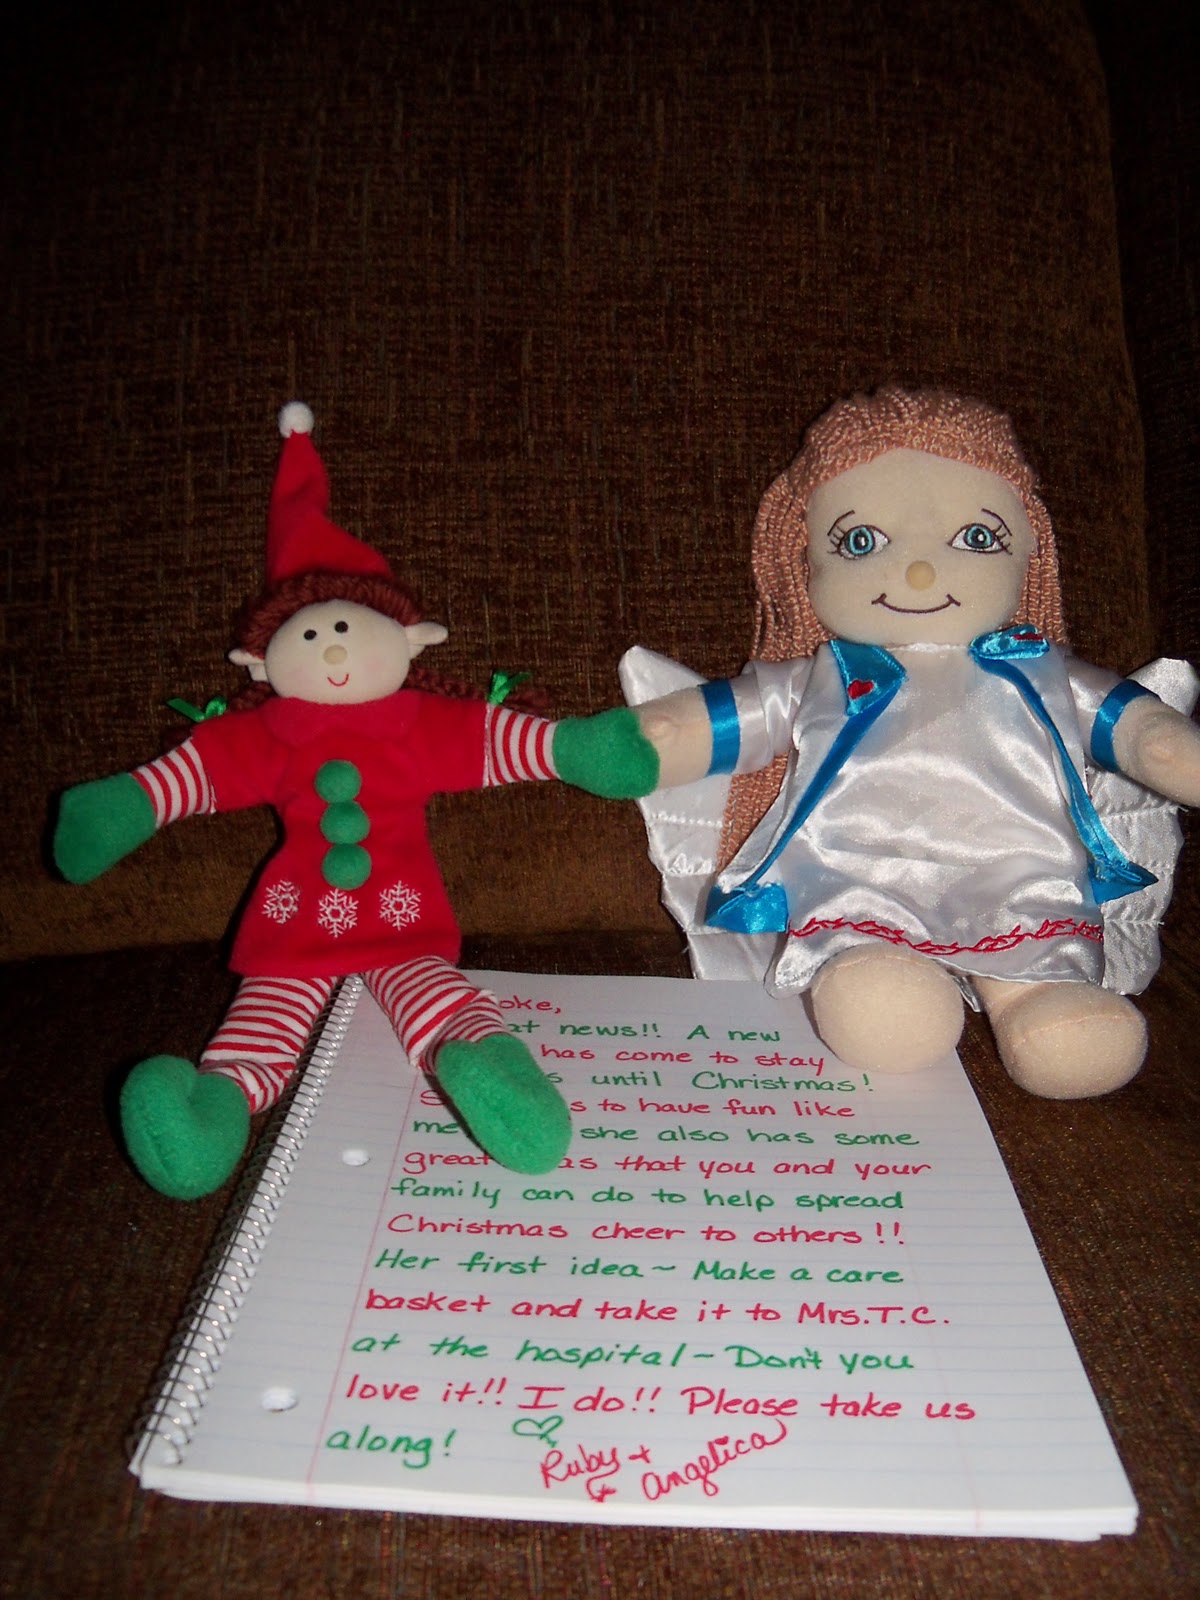 oke,
at news!! A new
has come to stay
s until Christmas!
s to have fun like
me she also has some
great as that you and your
family can do to help spread
Christmas cheer to others!!
Her first idea~ Make a care
basket and take it to Mrs. T.C.
at the hospital~ Don't you
love it!! I do!! Please take us
along!
Ruby +
Angelica